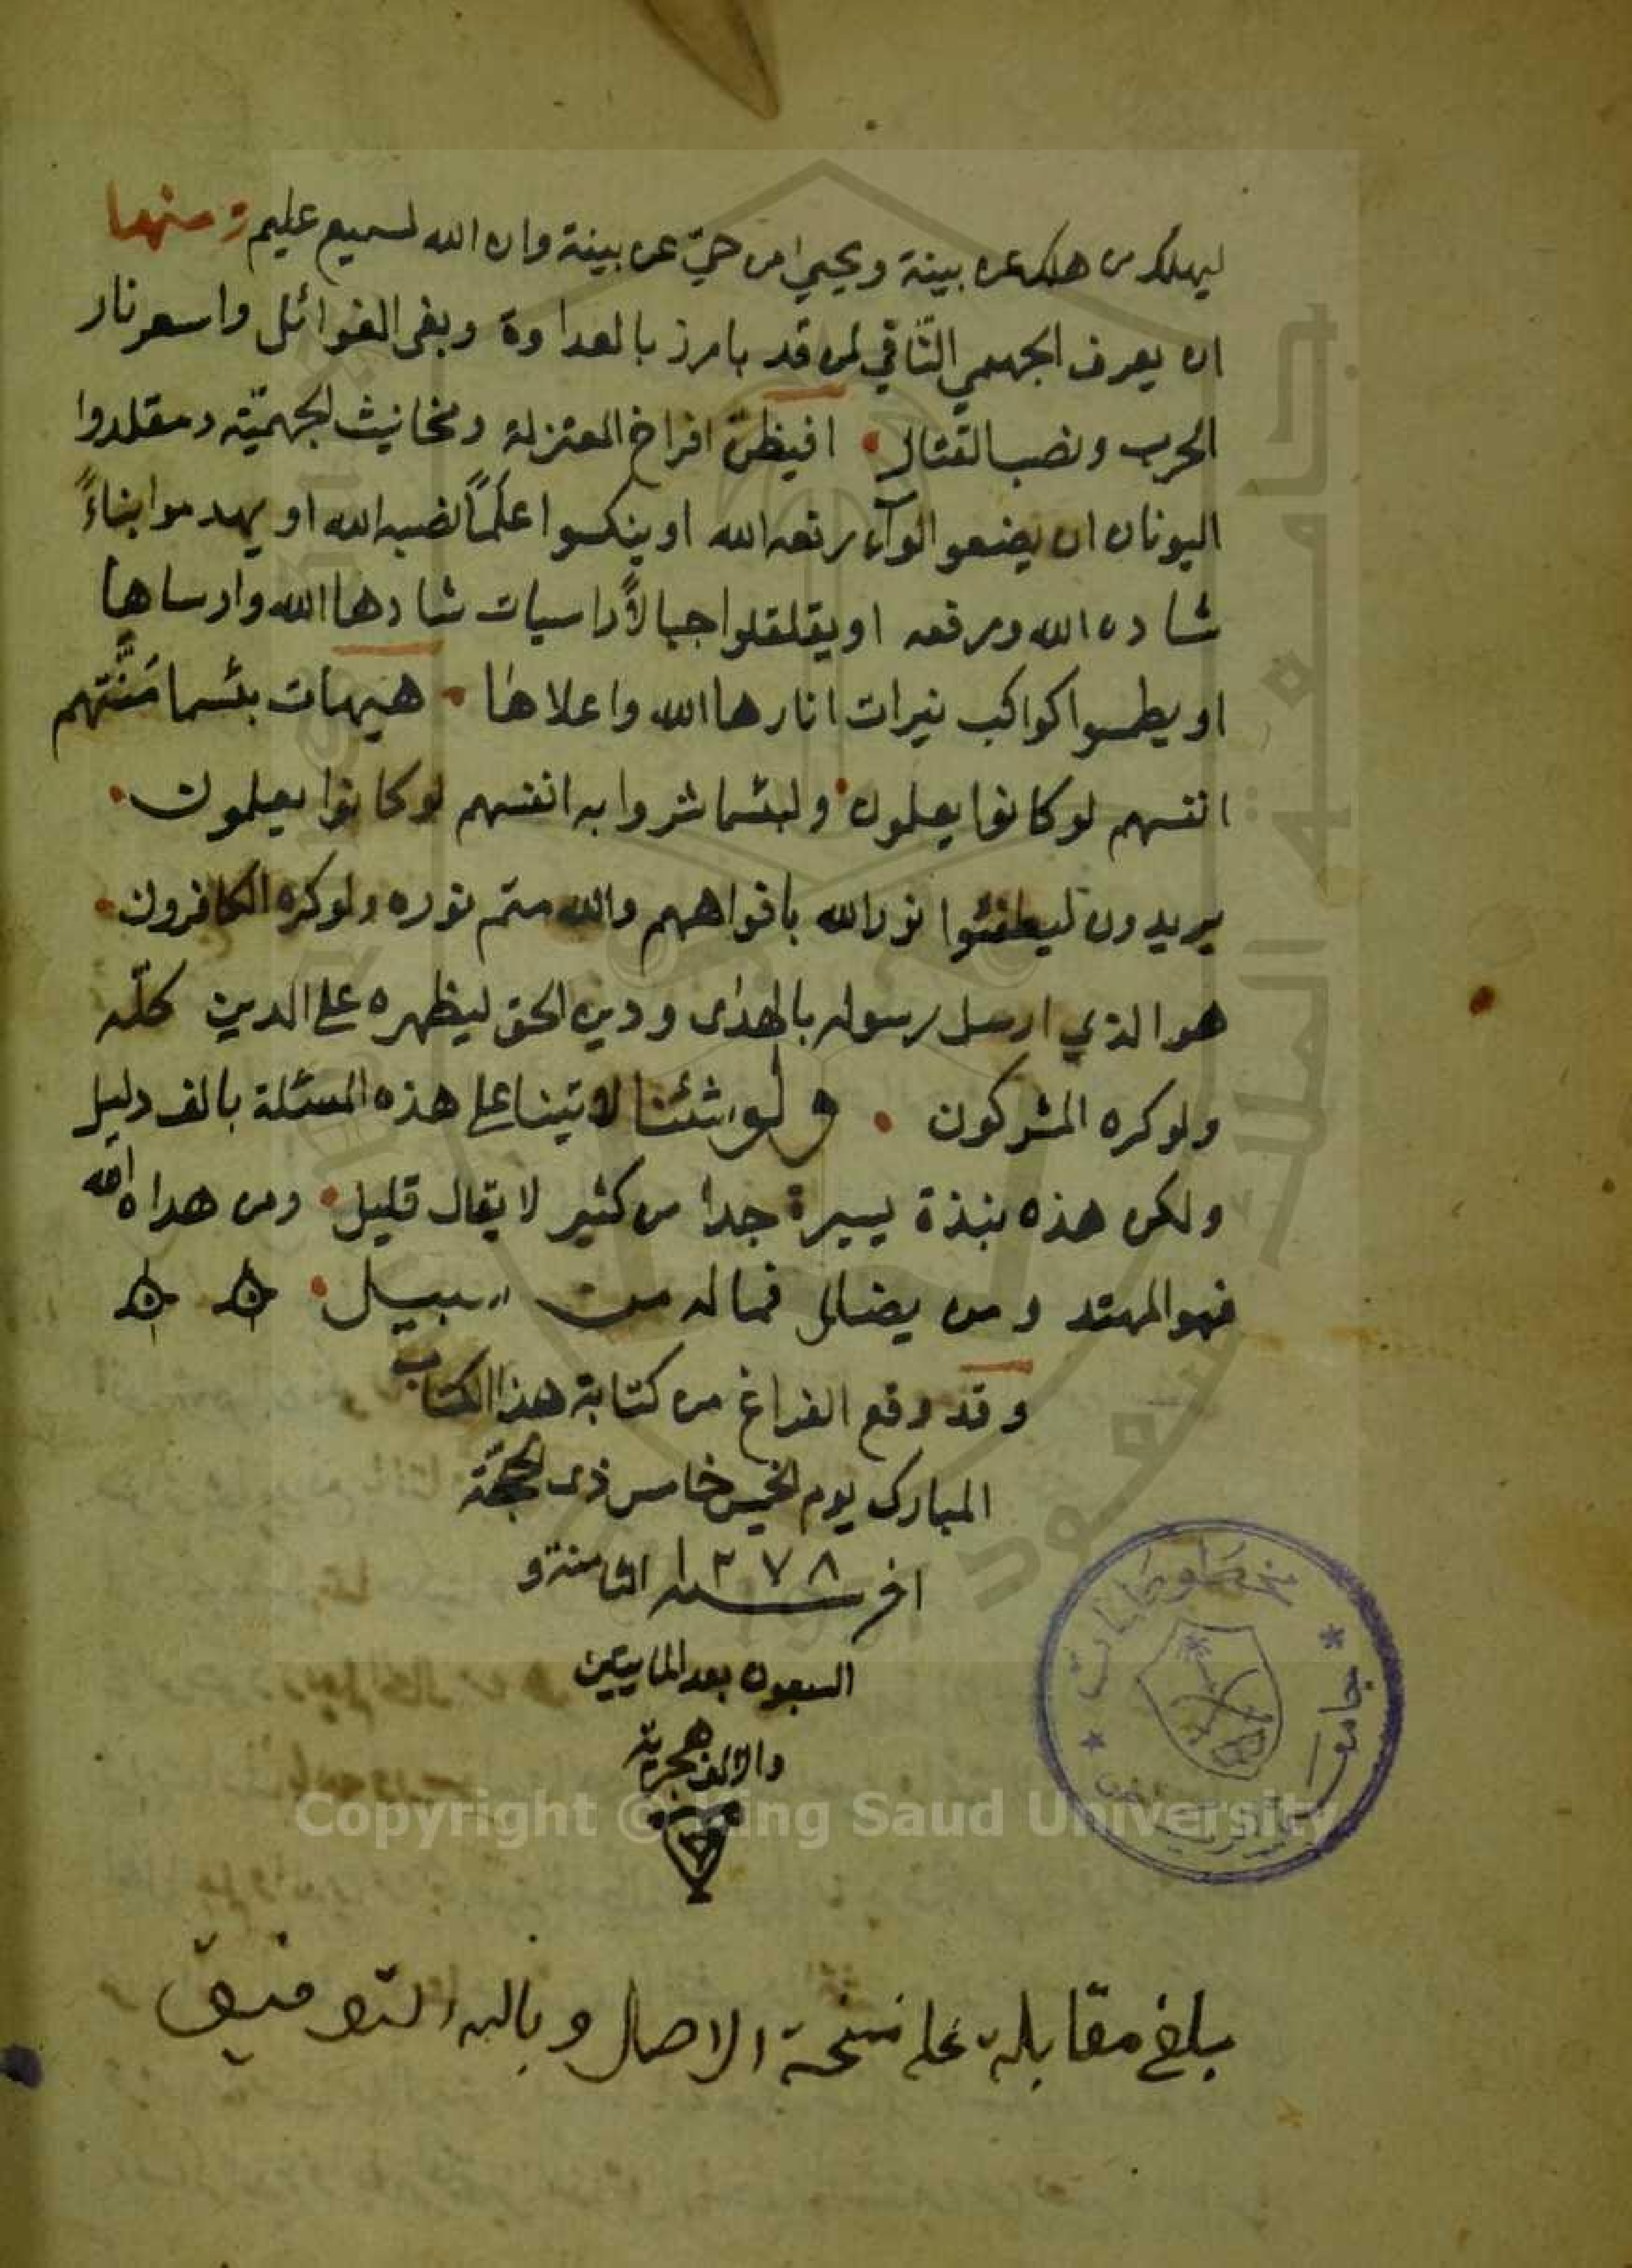 ليهلك من هلك عن بينة ويحيى من حيّ عن بينة وان الله لسميع عليم ومنها
ان يعرف الجهمي النّافي لمن قد بارز بالعداوة وبغى الغوائل واسعر نار
الحرب ونصب القتال • افيظن افراخ المعتزلة ومخانيث الجهميّة ومقلدوا
اليونان ان يضعوا لوآء رفعه الله او ينكسوا علماً نصبه الله او يهدموا بناءً
شاده الله ورفعه او يقلقلوا جبالاً راسيات شادها الله وارساها
او يطمسوا كواكب نيرات انارها الله واعلاها • هيهات بئسما مَنَّتهم
انفسهم لو كانوا يعلمون • ولبئسما شروا به انفسهم لو كانوا يعلمون •
يريدون ليطفئوا نور الله بافواههم والله متم نوره ولو كره الكافرون •
هو الذي ارسل رسوله بالهدى ودين الحق ليظهره على الدين كلّه
ولو كره المشركون • ولو شئنا لاتينا على هذه المسئلة بالف دليل
ولكن هذه نبذة يسيرة جدا من كثير لا يقال قليل • ومن هداه الله
فهو المهتد ومن يضلل فما له من سبيل •
وقد وقع الفراغ من كتابة هذا الكتاب
المبارك يوم الخميس خامس ذى الحجّة
اخر سنة ١٢٧٨ الثامنة و
السبعون بعد المايتين
والالف هجرية
مخطوطات
جامعة الرياض
بلغ مقابلة على نسخة الاصل وبالله التوفيق
جامعة الملك سعود
1957
Copyright © King Saud University